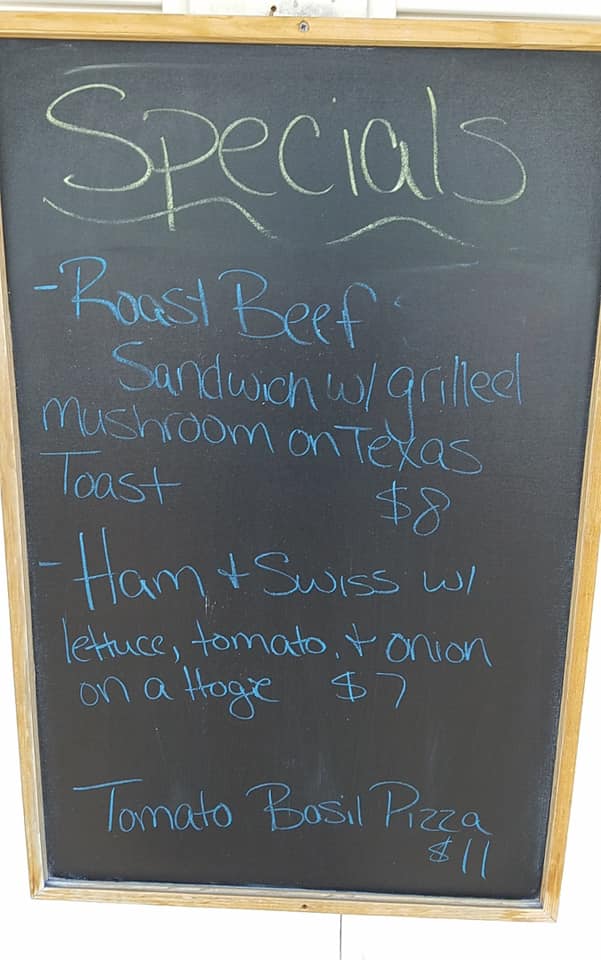 Specials
- Roast Beef
Sandwich w/ grilled
mushroom on Texas
Toast $8
- Ham + Swiss w/
lettuce, tomato, + onion
on a Hogie $7
Tomato Basil Pizza
$11